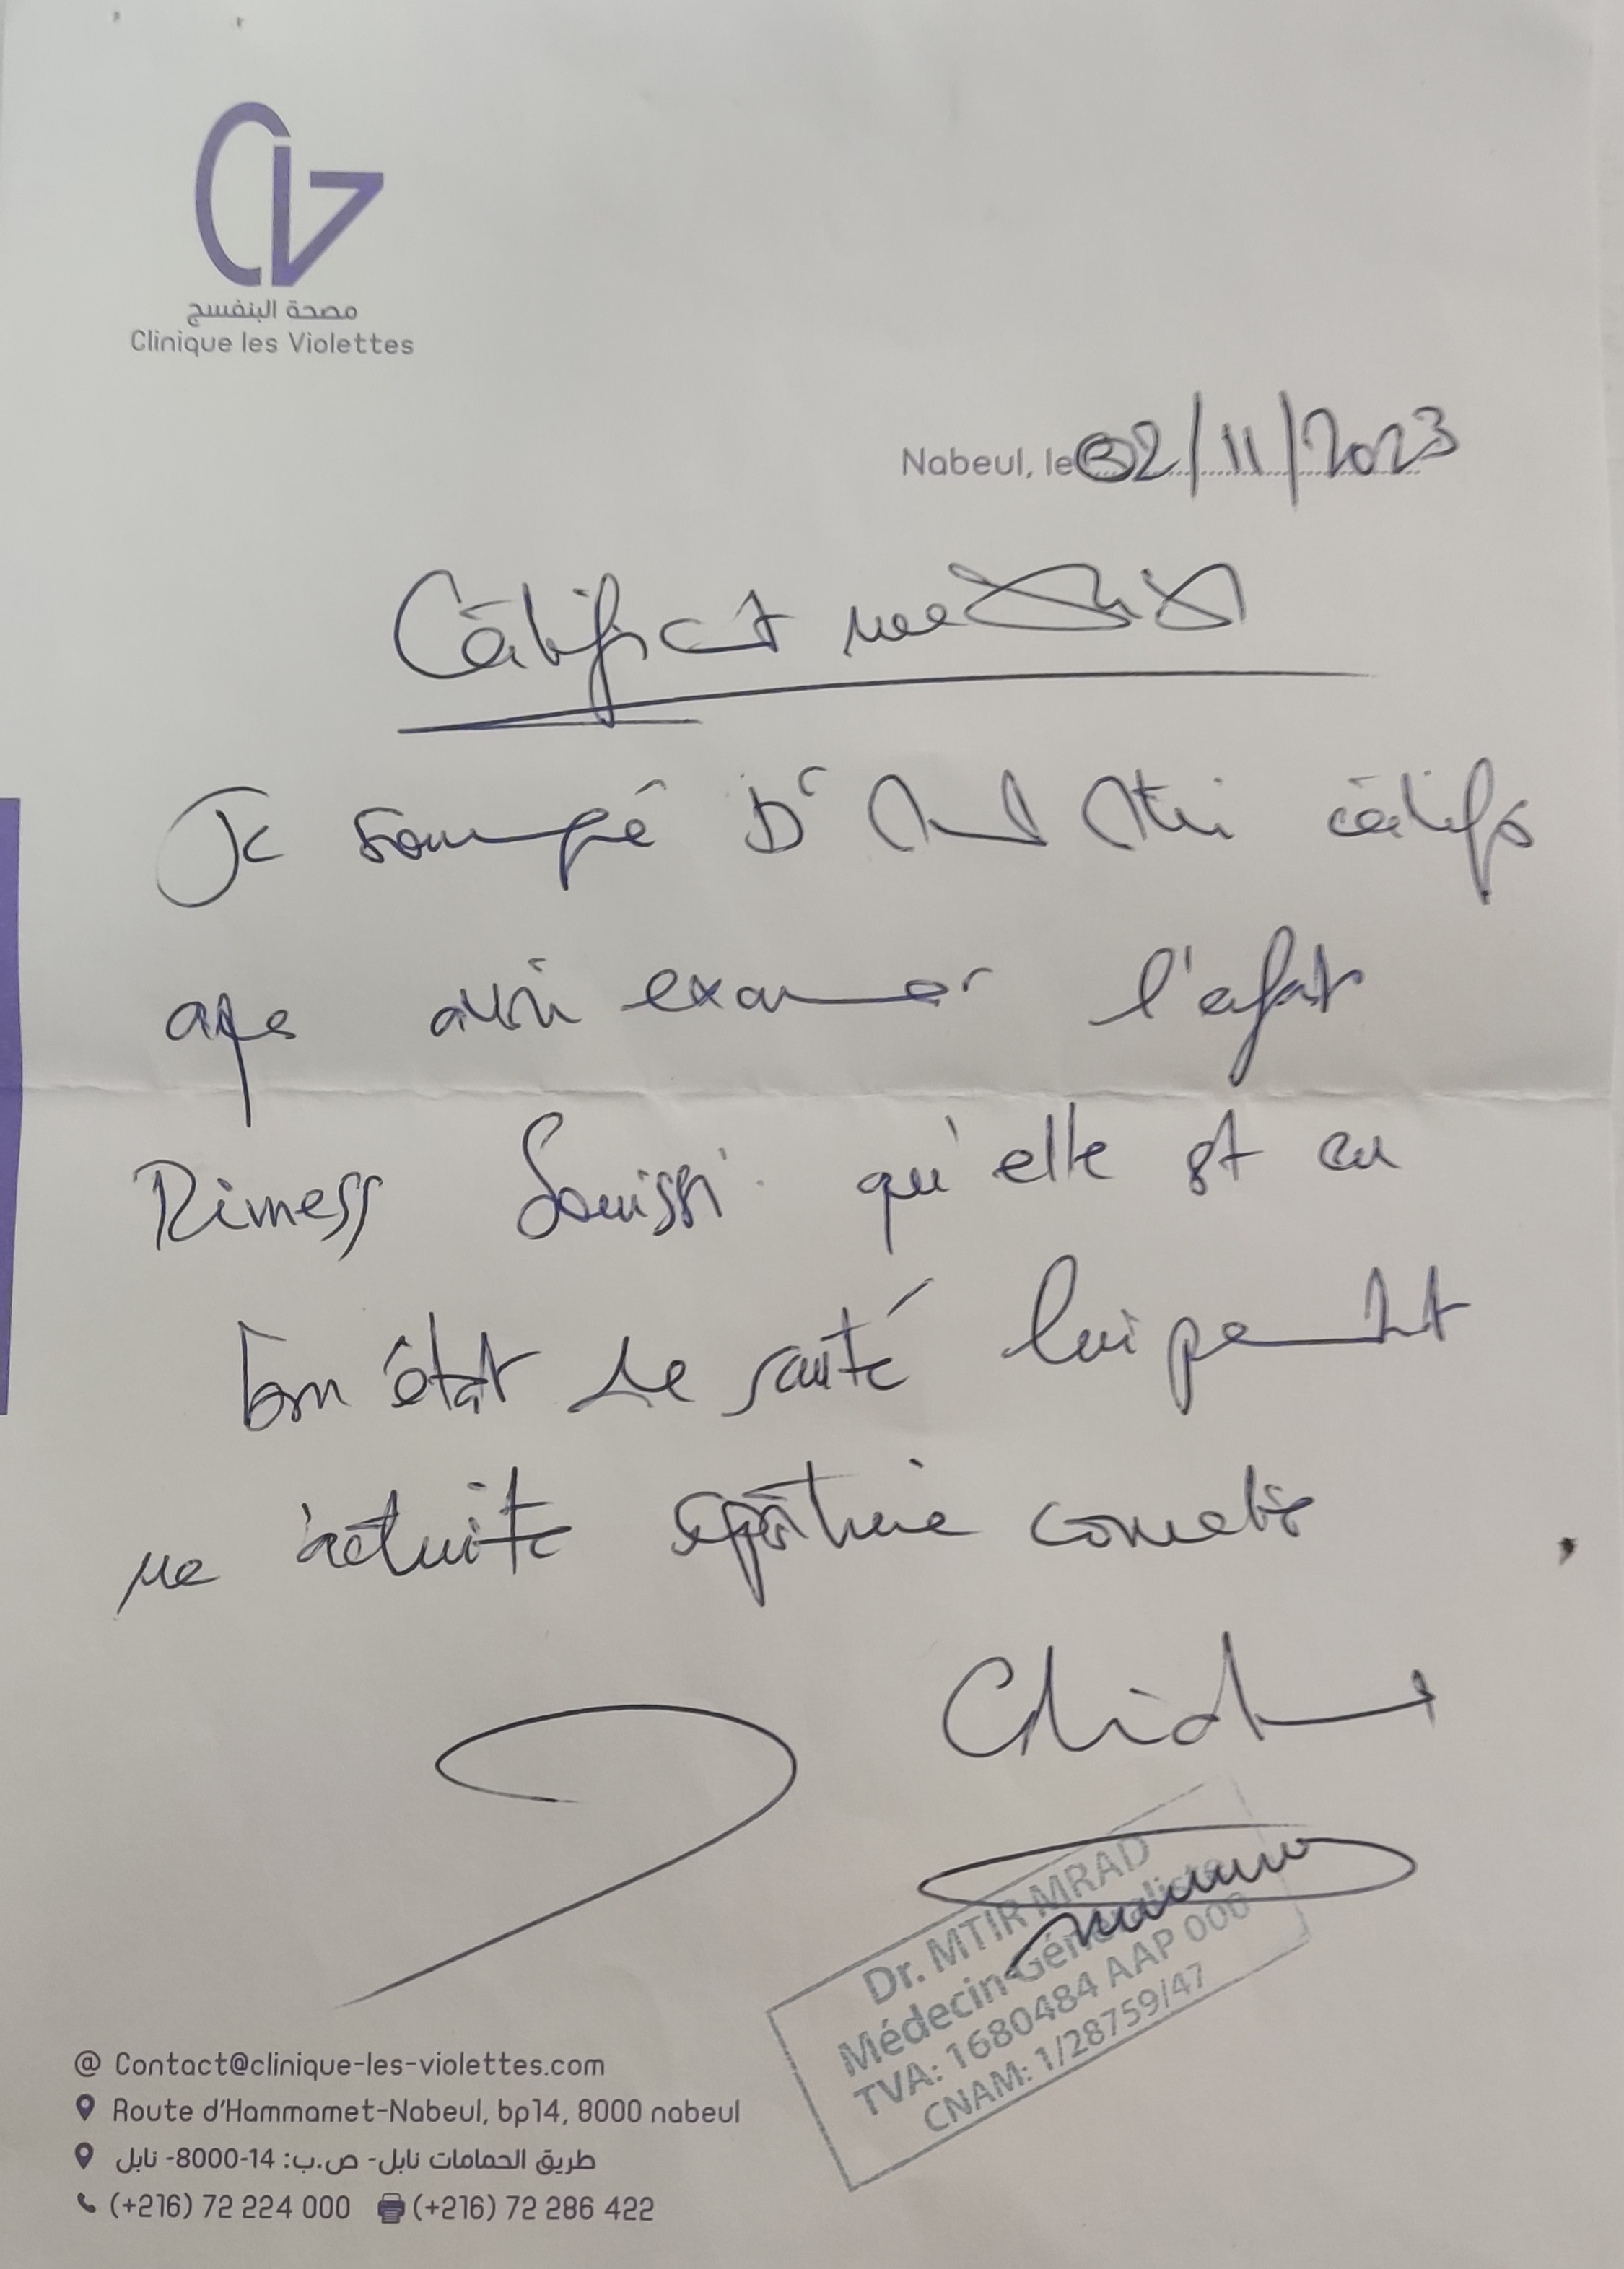 مصحة البنفسج
Clinique les Violettes
Nabeul, le 02/11/2023
Certificat médical
Je soussigné Dr Mrad Mtir certifie
après avoir examiner l'enfant
Rimess Souissi qu'elle est en
bon état de santé lui permettant
une activité sportive
Dr. MTIR MRAD
Médecin Généraliste
TVA: 1680484 AAP 000
CNAM: 1/28759/47
@ Contact@clinique-les-violettes.com
Route d'Hammamet-Nabeul, bp14, 8000 nabeul
طريق الحمامات نابل- ص.ب: 14-8000- نابل
(+216) 72 224 000 (+216) 72 286 422